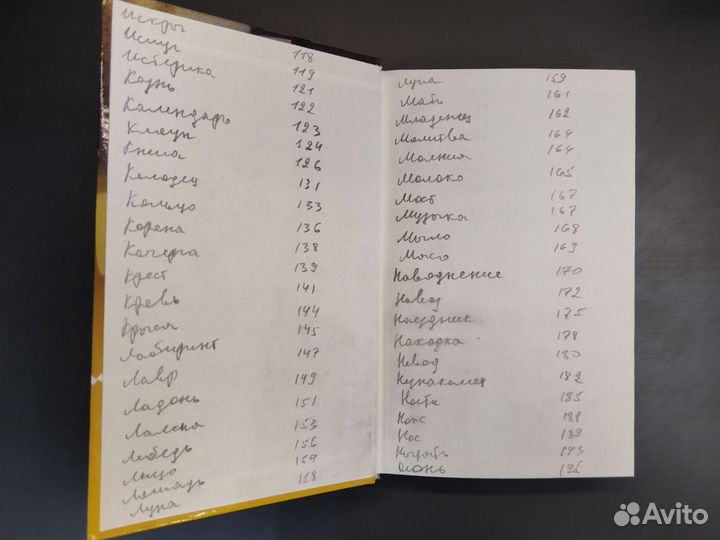 Искры 118
Испуг 119
Истерика 121
Казнь 122
Календарь 123
Клоун 124
Книга 126
Колодец 131
Кольцо 133
Корона 136
Кочерга 138
Крест 139
Кровь 141
Крыса 144
Лабиринт 145
Лавр 147
Ладонь 149
Лампа 151
Лебедь 153
Лицо 156
Лошадь 157
Луна 158
Лупа 159
Мать 161
Младенец 162
Молитва 164
Молния 164
Молоко 165
Мост 167
Музыка 167
Мыло 168
Мясо 169
Наводнение 170
Навоз 172
Наездник 175
Находка 178
Невод 180
182
Ногти 185
Нож 188
Нос 189
Нырять 193
Огонь 195
Avito